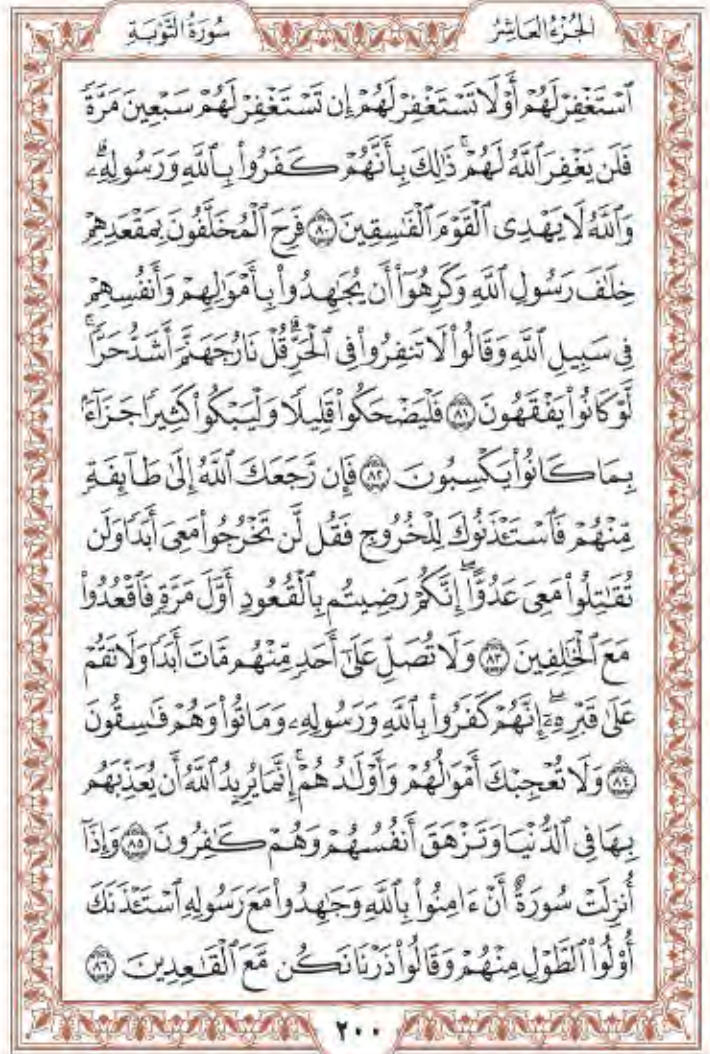 الجُزْءُ العَاشِرُ سُورَةُ التَّوْبَةِ
ٱسْتَغْفِرْ لَهُمْ أَوْ لَا تَسْتَغْفِرْ لَهُمْ إِن تَسْتَغْفِرْ لَهُمْ سَبْعِينَ مَرَّةً
فَلَن يَغْفِرَ ٱللَّهُ لَهُمْۚ ذَٰلِكَ بِأَنَّهُمْ كَفَرُوا۟ بِٱللَّهِ وَرَسُولِهِۦۗ
وَٱللَّهُ لَا يَهْدِى ٱلْقَوْمَ ٱلْفَٰسِقِينَ ٨٠ فَرِحَ ٱلْمُخَلَّفُونَ بِمَقْعَدِهِمْ
خِلَٰفَ رَسُولِ ٱللَّهِ وَكَرِهُوٓا۟ أَن يُجَٰهِدُوا۟ بِأَمْوَٰلِهِمْ وَأَنفُسِهِمْ
فِى سَبِيلِ ٱللَّهِ وَقَالُوا۟ لَا تَنفِرُوا۟ فِى ٱلْحَرِّۗ قُلْ نَارُ جَهَنَّمَ أَشَدُّ حَرًّاۚ
لَّوْ كَانُوا۟ يَفْقَهُونَ ٨١ فَلْيَضْحَكُوا۟ قَلِيلًا وَلْيَبْكُوا۟ كَثِيرًا جَزَآءًۢ
بِمَا كَانُوا۟ يَكْسِبُونَ ٨٢ فَإِن رَّجَعَكَ ٱللَّهُ إِلَىٰ طَآئِفَةٍ
مِّنْهُمْ فَٱسْتَـْٔذَنُوكَ لِلْخُرُوجِ فَقُل لَّن تَخْرُجُوا۟ مَعِىَ أَبَدًا وَلَن
تُقَٰتِلُوا۟ مَعِىَ عَدُوًّاۖ إِنَّكُمْ رَضِيتُم بِٱلْقُعُودِ أَوَّلَ مَرَّةٍ فَٱقْعُدُوا۟
مَعَ ٱلْخَٰلِفِينَ ٨٣ وَلَا تُصَلِّ عَلَىٰٓ أَحَدٍ مِّنْهُم مَّاتَ أَبَدًا وَلَا تَقُمْ
عَلَىٰ قَبْرِهِۦٓۖ إِنَّهُمْ كَفَرُوا۟ بِٱللَّهِ وَرَسُولِهِۦ وَمَاتُوا۟ وَهُمْ فَٰسِقُونَ
٨٤ وَلَا تُعْجِبْكَ أَمْوَٰلُهُمْ وَأَوْلَٰدُهُمْۚ إِنَّمَا يُرِيدُ ٱللَّهُ أَن يُعَذِّبَهُم
بِهَا فِى ٱلدُّنْيَا وَتَزْهَقَ أَنفُسُهُمْ وَهُمْ كَٰفِرُونَ ٨٥ وَإِذَآ
أُنزِلَتْ سُورَةٌ أَنْ ءَامِنُوا۟ بِٱللَّهِ وَجَٰهِدُوا۟ مَعَ رَسُولِهِ ٱسْتَـْٔذَنَكَ
أُو۟لُوا۟ ٱلطَّوْلِ مِنْهُمْ وَقَالُوا۟ ذَرْنَا نَكُن مَّعَ ٱلْقَٰعِدِينَ ٨٦
٢٠٠